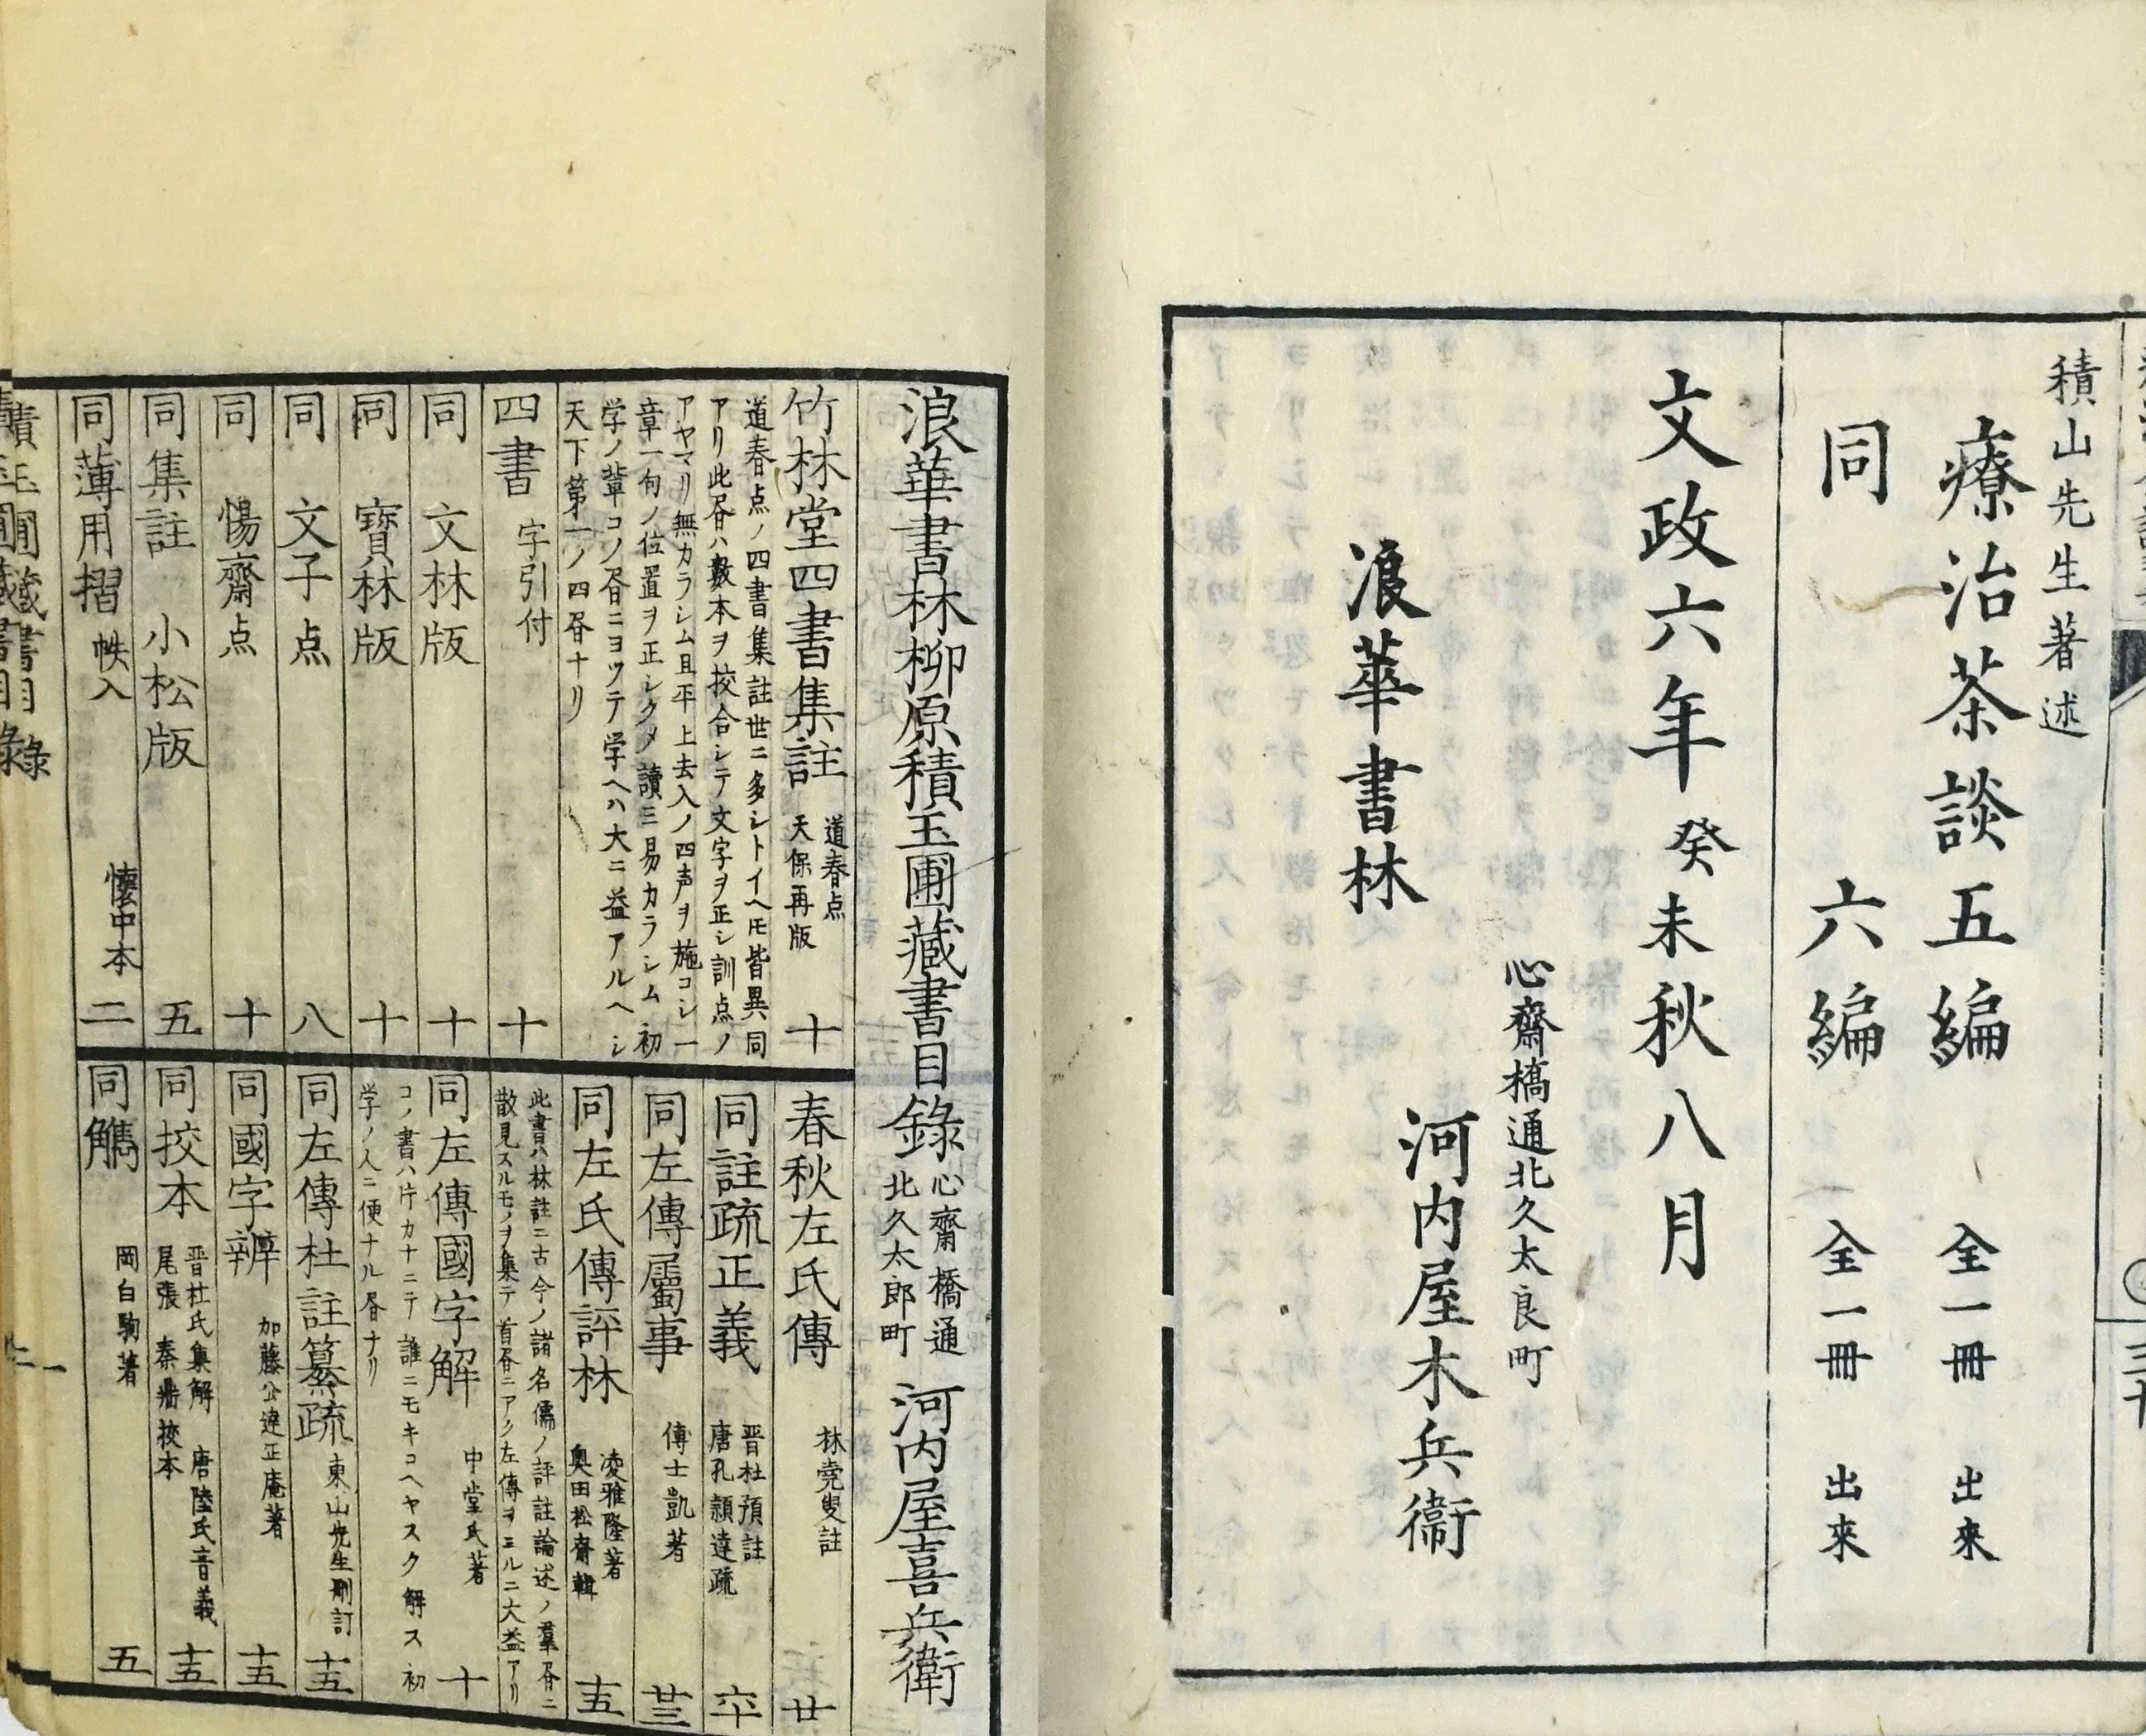 積山先生著述
療治茶談五編 全一冊 出來
同 六編 全一冊 出來
文政六年癸未秋八月
心齋橋通北久太良町
浪華書林 河内屋木兵衞
浪華書林柳原積玉圃藏書目録 心齋橋通北久太郎町 河内屋喜兵衛
竹林堂四書集註 道春点 天保再版 十
道春点ノ四書集註世ニ多シトイヘ𪜈皆異同
アリ此昏ハ數本ヲ挍合シテ文字ヲ正シ訓点ノ
アヤマリ無カラシム且平上去入ノ四声ヲ施コシ一
章一句ノ位置ヲ正シクメ讀ニ易カラシム初
学ノ輩コノ昏ニヨツテ学ヘハ大ニ益アルヘシ
天下第一ノ四昏ナリ
四書 字引付 十
同 文林版 十
同 寳林版 十
同 文子点 八
同 惕齋点 十
同集註 小松版 五
同薄用摺 帙入 懷中本 二
春秋左氏傳 林堯叟註 廿
同註疏正義 晋杜預註 唐孔穎達疏 六十
同左傳屬事 傳士凱著 廿三
同左氏傳評林 凌雅隆著 奥田松齋輯 十五
此書ハ林註ニ古今ノ諸名儒ノ評註論述ノ羣昏ニ
散見スルモノヲ集テ首昏ニアク左傳ヲミルニ大益アリ
同左傳國字解 中堂氏著 十
コノ書ハ片カナニテ誰ニモキコヘヤスク解ス初
学ノ人ニ便ナル昏ナリ
同左傳杜註纂疏 東山先生刪訂 十五
同國字辨 加藤公達正庵著 十五
同挍本 晋杜氏集解 唐陸氏音義 尾張 秦鼎挍本 十五
同觿 岡白駒著 五
積玉圃藏書目録